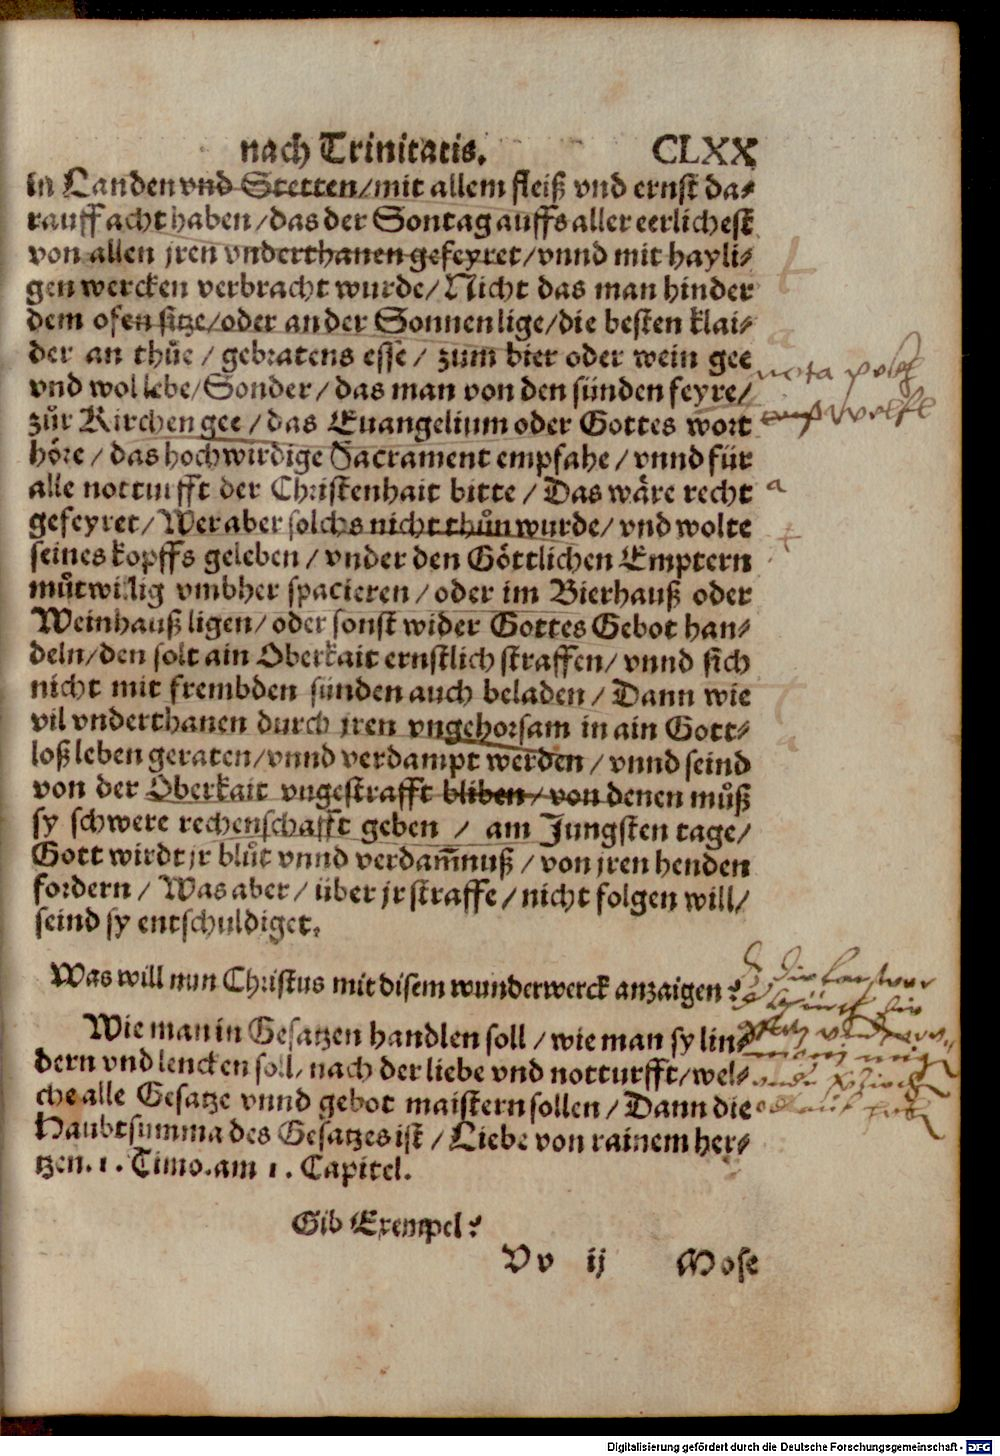 nach Trinitatis. CLXX
in Landen vnd Stetten/mit allem fleiß vnd ernst da-
rauff acht haben/das der Sontag auffs aller eerlichest
von allen jren vnderthanen gefeyret/vnnd mit hayli-
gen wercken verbracht wurde/Nicht das man hinder
dem ofen sitze/oder an der Sonnen lige/die besten klai-
der an thůe/gebratens esse/zům bier oder wein gee
vnd wol lebe/Sonder/das man von den sünden feyre/
zůr Kirchen gee/das Euangelium oder Gottes wort
höre/das hochwirdige Sacrament empfahe/vnnd für
alle notturfft der Christenhait bitte/Das wäre recht
gefeyret/Wer aber solchs nicht thůn wurde/vnd wolte
seines kopffs geleben/vnder den Göttlichen Emptern
můtwillig vmbher spacieren/oder im Bierhauß oder
Weinhauß ligen/oder sonst wider Gottes Gebot han-
deln/den solt ain Oberkait ernstlich straffen/vnnd sich
nicht mit frembden sünden auch beladen/Dann wie
vil vnderthanen durch jren vngehorsam in ain Gott-
loß leben geraten/vnnd verdampt werden/vnnd seind
von der Oberkait vngestrafft bliben/von denen můß
sy schwere rechenschafft geben/am Jungsten tage/
Gott wirdt jr blůt vnnd verdam̃nuß/von jren henden
fordern/Was aber/über jr straffe/nicht folgen will/
seind sy entschuldiget.
Was will nun Christus mit disem wunderwerck anzaigen?
Wie man in Gesatzen handlen soll/wie man sy lin-
dern vnd lencken soll/nach der liebe vnd notturfft/wel-
che alle Gesatze vnnd gebot maistern sollen/Dann die
Haubtsumma des Gesatzes ist/Liebe von rainem her-
tzen.1.Timo.am 1.Capitel.
Gib Exempel?
Vv ij Mose
nota
a
Digitalisierung gefördert durch die Deutsche Forschungsgemeinschaft - DFG